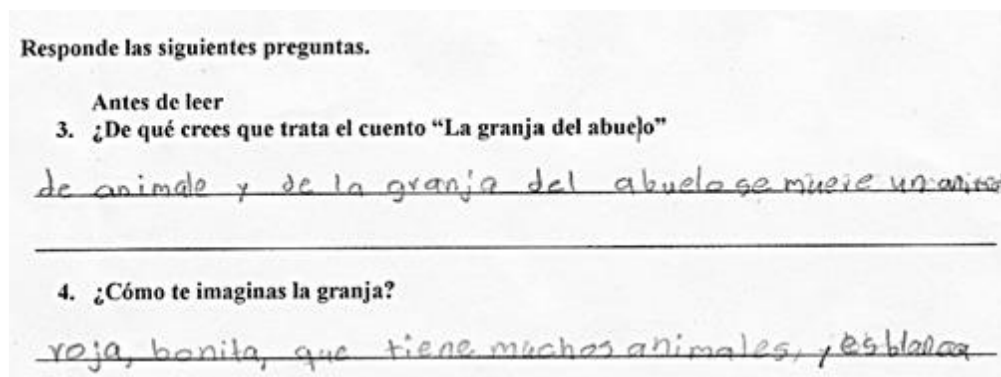 Responde las siguientes preguntas.
Antes de leer
3. ¿De qué crees que trata el cuento “La granja del abuelo”
de animale y de la granja del abuelo se muere un
4. ¿Cómo te imaginas la granja?
roja, bonita, que tiene muchos animales, y es blanca